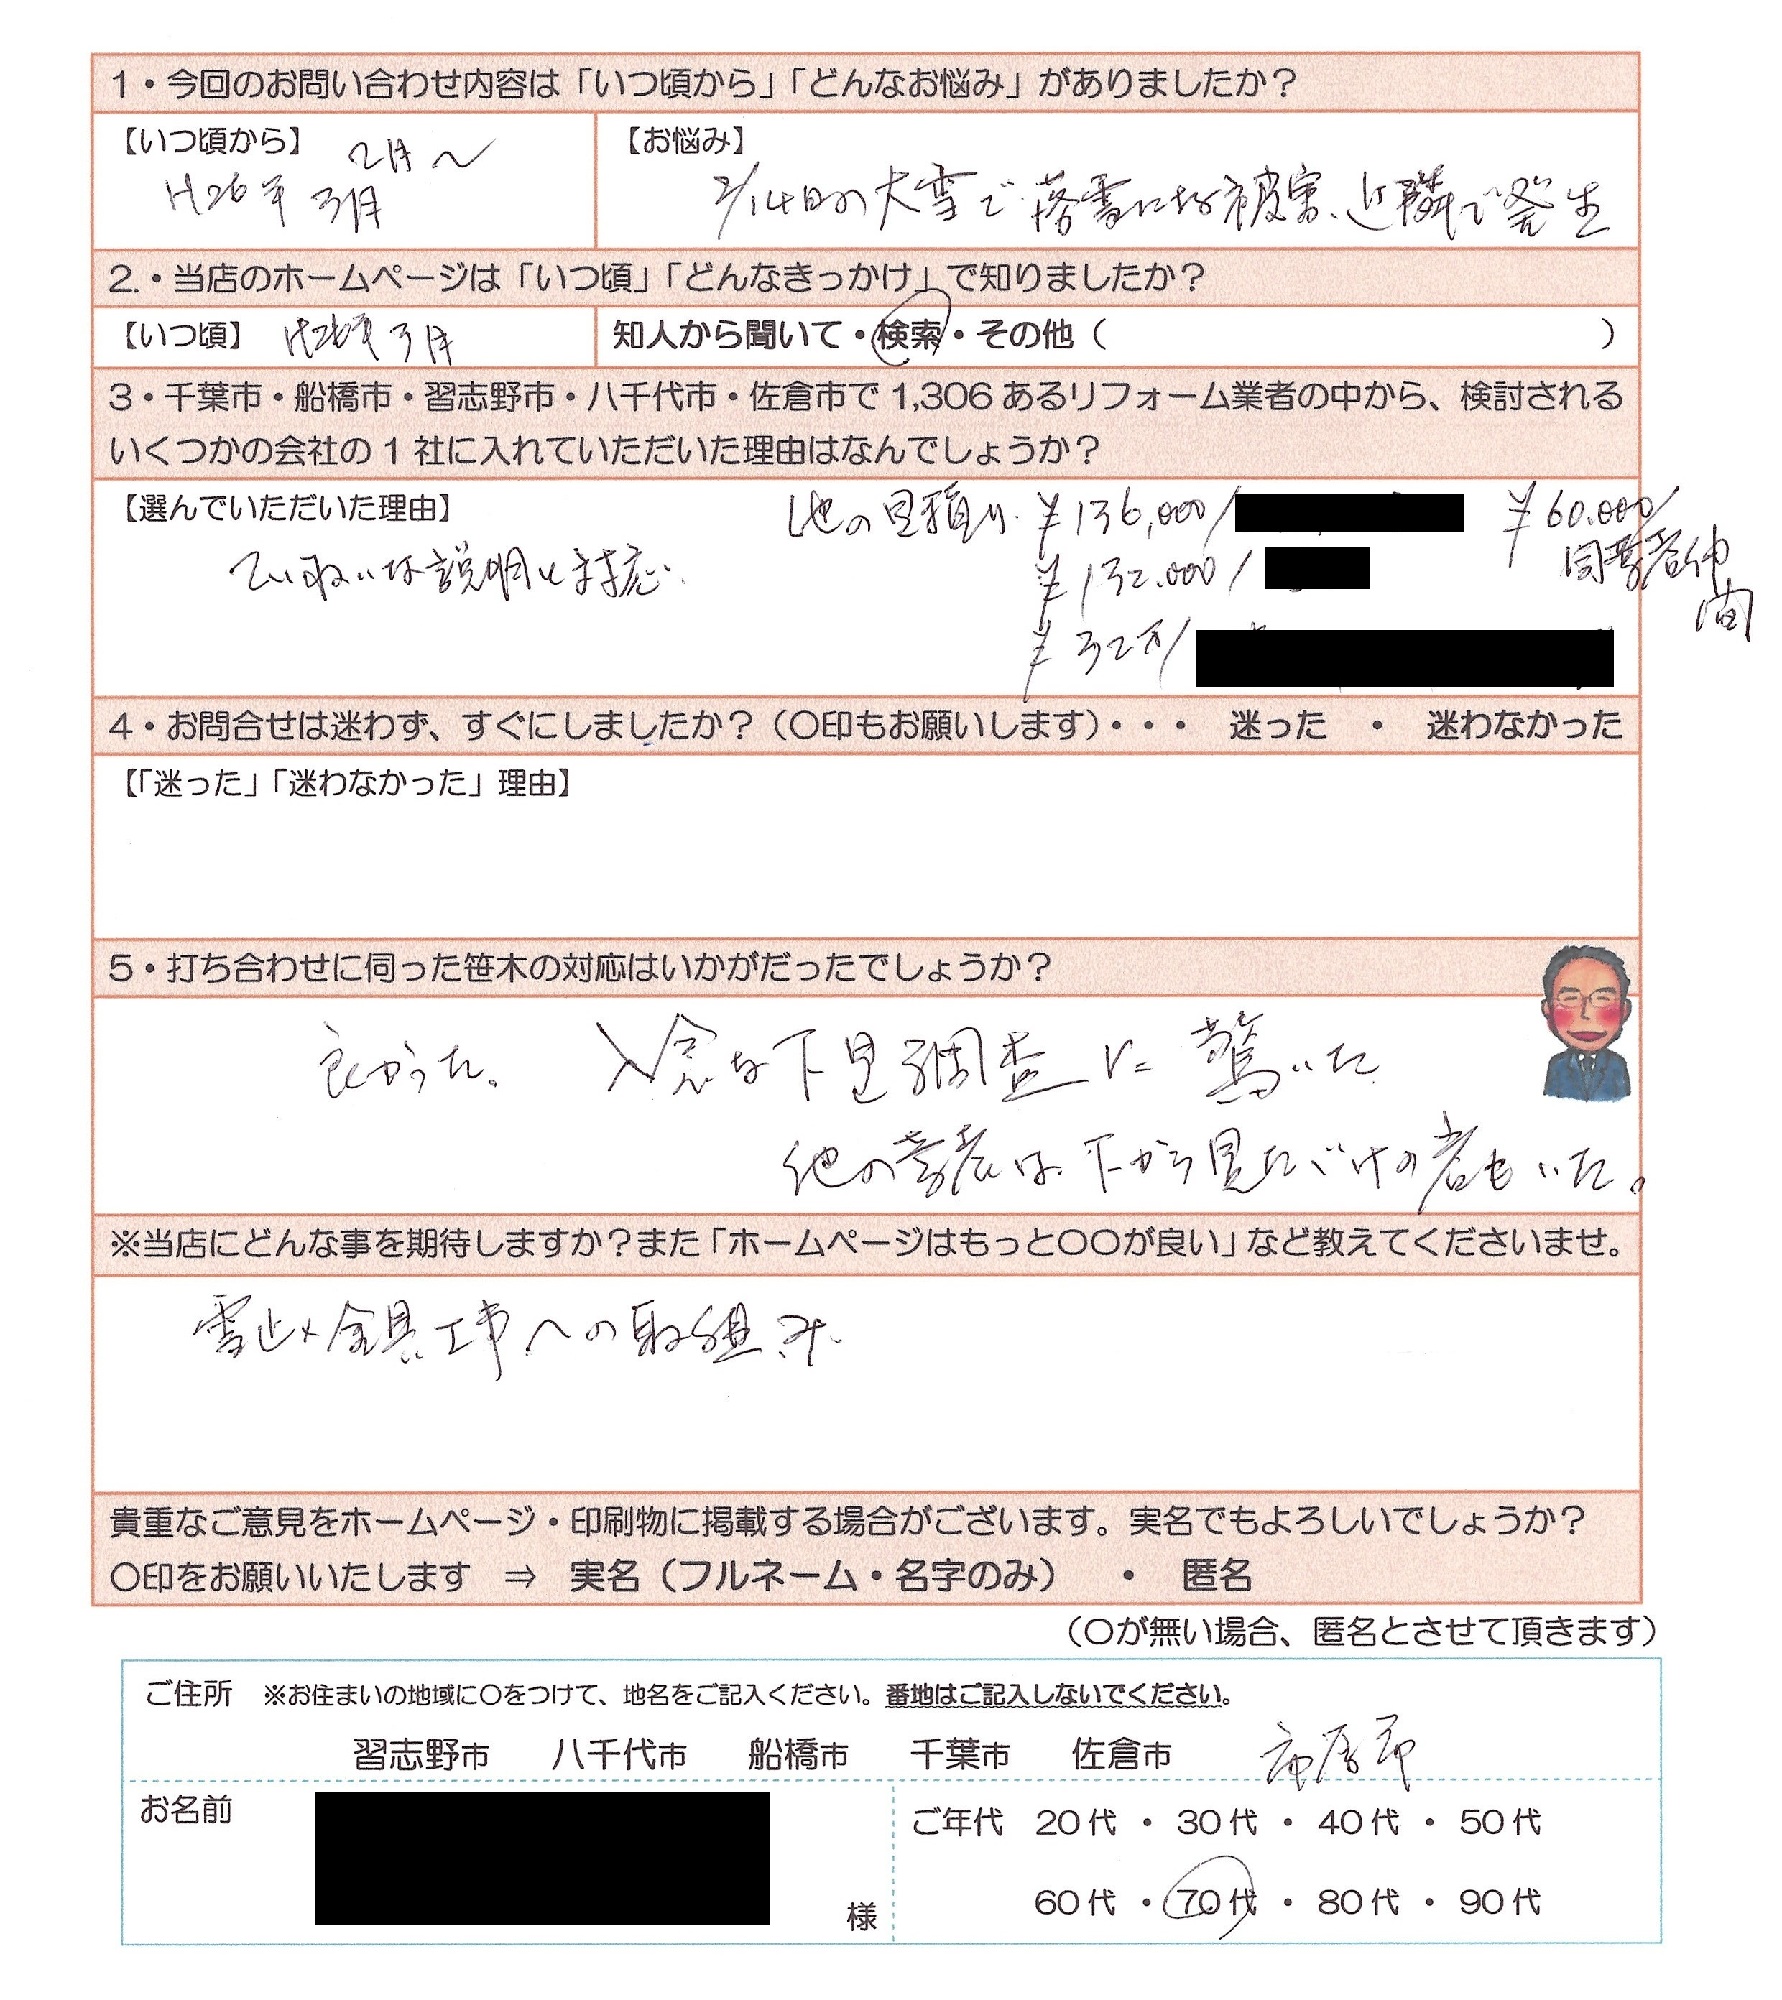 1・今回のお問い合わせ内容は「いつ頃から」「どんなお悩み」がありましたか？
【いつ頃から】 2月～
H26年 3月
【お悩み】
2/14日の大雪で落雪による被害、近隣で発生
2.・当店のホームページは「いつ頃」「どんなきっかけ」で知りましたか？
【いつ頃】 H26年3月
知人から聞いて・検索・その他（ ）
3・千葉市・船橋市・習志野市・八千代市・佐倉市で1,306あるリフォーム業者の中から、検討される
いくつかの会社の1社に入れていただいた理由はなんでしょうか？
【選んでいただいた理由】
ていねいな説明と対応.
他の見積り. ¥136,000/ ¥60.000/
同業者仲
間
¥132.000/
¥32万/
4・お問合せは迷わず、すぐにしましたか？（〇印もお願いします）・・・ 迷った ・ 迷わなかった
【「迷った」「迷わなかった」理由】
5・打ち合わせに伺った笹木の対応はいかがだったでしょうか？
良かった。 入念な下見調査に驚いた.
他の業者は、下から見ただけの者もいた。
※当店にどんな事を期待しますか？また「ホームページはもっと〇〇が良い」など教えてくださいませ。
雪止メ金具工事への取組み.
貴重なご意見をホームページ・印刷物に掲載する場合がございます。実名でもよろしいでしょうか？
〇印をお願いいたします ⇒ 実名（フルネーム・名字のみ） ・ 匿名
（〇が無い場合、匿名とさせて頂きます）
ご住所 ※お住まいの地域に〇をつけて、地名をご記入ください。番地はご記入しないでください。
習志野市 八千代市 船橋市 千葉市 佐倉市 市原市
お名前
様
ご年代 20代・30代・40代・50代
60代・70代・80代・90代